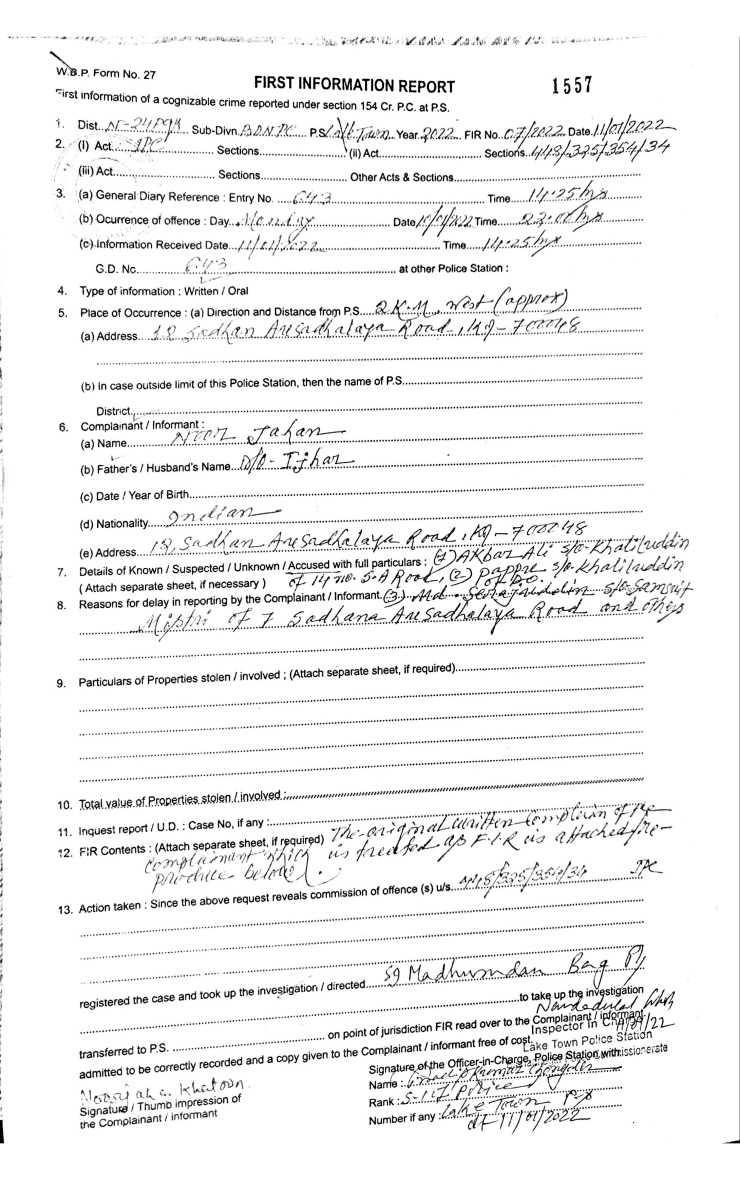 W.B.P. Form No. 27
FIRST INFORMATION REPORT
1557
First information of a cognizable crime reported under section 154 Cr. P.C. at P.S.
1. Dist. N-24 Pgs Sub-Divn. BDN PC P.S. Lake Town Year 2022 FIR No. 07/2022 Date 11/01/2022
2. (I) Act IPC Sections (ii) Act Sections 448/325/354/34
(iii) Act Sections Other Acts & Sections
3. (a) General Diary Reference : Entry No. 643 Time 14.25 hrs
(b) Ocurrence of offence : Day Monday Date 10/01/2022 Time
(c) Information Received Date 11/01/2022 Time 14.25 hrs
G.D. No. 643 at other Police Station :
4. Type of information : Written / Oral
5. Place of Occurrence : (a) Direction and Distance from P.S. 2 K.M, West (approx)
(a) Address 18 Sadhan Ausadhalaya Road, Kol- 700048
(b) In case outside limit of this Police Station, then the name of P.S.
District
6. Complainant / Informant :
(a) Name Noor Jahan
(b) Father's / Husband's Name D/O - Ijhar
(c) Date / Year of Birth
(d) Nationality Indian
(e) Address 18, Sadhan Ausadhalaya Road, Kol - 700048
7. Details of Known / Suspected / Unknown / Accused with full particulars : (1) Akbar Ali S/o- Khaliluddin
(Attach separate sheet, if necessary ) of 14 no. S.A Road, (2) Pappu S/o- Khaliluddin of Do.
8. Reasons for delay in reporting by the Complainant / Informant. (3) Md. Serajuddin S/o
Mistri of 7 Sadhana Ausadhalaya Road and others
9. Particulars of Properties stolen / involved ; (Attach separate sheet, if required)
10. Total value of Properties stolen / involved :
11. Inquest report / U.D. : Case No, if any :
12. FIR Contents : (Attach separate sheet, if required) The original written complain of the
complainant which is treated as F.I.R is attached &
produce below.
13. Action taken : Since the above request reveals commission of offence (s) u/s. 448/325/354/34 IPC
registered the case and took up the investigation / directed SI Madhusudan Bag
to take up the investigation
transferred to P.S. on point of jurisdiction FIR read over to the Complainant / informant
admitted to be correctly recorded and a copy given to the Complainant / informant free of cost.
Inspector In Charge
11/01/22
Lake Town Police Station
Signature of the Officer-in-Charge, Police Station with
Name :
Rank : S.I of Police
Number if any : Lake Town PS
dt 11/01/2022
Noorjahan Khatoon.
Signature / Thumb impression of
the Complainant / informant